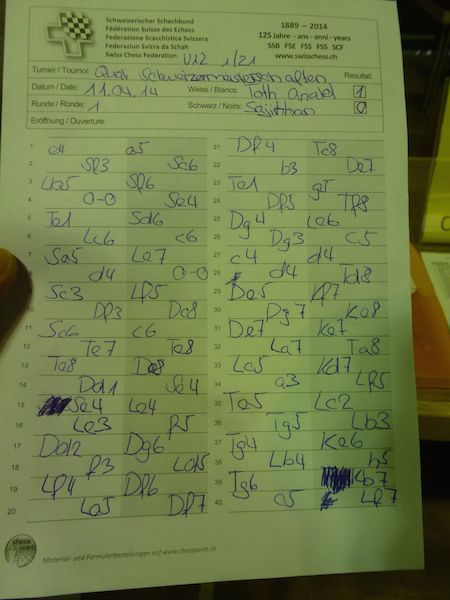 Schweizerischer Schachbund
Fédération Suisse des Echecs
Federazione Scacchistica Svizzera
Federaziun Svizra da Schah
Swiss Chess Federation
U12 1/21
1889 – 2014
125 Jahre - ans - anni - years
SSB FSE FSS FSS SCF
www.swisschess.ch
Turnier / Tournoi: Quali Schweizermeisterschaften
Resultat:
Datum / Date: 11.04.14 Weiss / Blancs: Toth 1
Runde / Ronde: 1 Schwarz / Noirs: 0
Eröffnung / Ouverture:
1 e4 e5
2 Sf3 Sc6
3 Lb5 Sf6
4 0-0 Se4
5 Te1 Sd6
6 Lc6 c6
7 Se5 Le7
8 d4 0-0
9 Sc3 Lf5
10 Df3 Dc8
11 Sc6 c6
12 Te7 Te8
13 Te8 De8
14 Dd1 Se4
15 Se4 Le4
16 Le3 f5
17 Dd2 Dg6
18 f3 Ld5
19 Lf4 Df6
20 Le5 Df7
21 Df4 Tc8
22 b3 De7
23 Te1 g5
24 Df5 Tf8
25 Dg4 Le6
26 Dg3 c5
27 c4 d4
28 d4 Td8
29 De5 Kf7
30 Dg7 Ke8
31 De7 Ke7
32 La7 Ta8
33 Lc5 Kd7
34 a3 Lf5
35 Te5 Lc2
36 Tg5 Lb3
37 Tg4 Ke6
38 Lb4 h5
39 Tg6 Kb7
40 c5 Lf7
chess point
Material- und Formularbestellungen auf www.chesspoint.ch